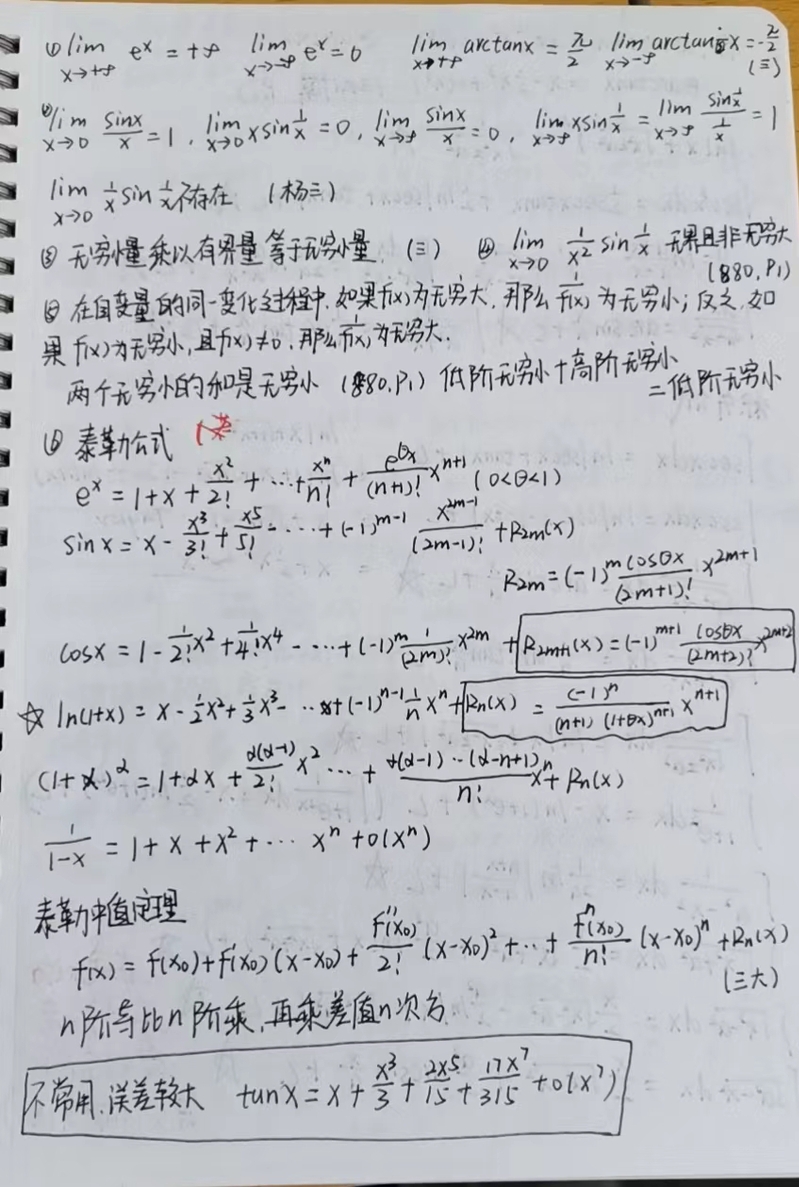 ① lim_{x→+∞} e^x = +∞  lim_{x→-∞} e^x = 0  lim_{x→+∞} arctanx = π/2  lim_{x→-∞} arctan x = -π/2
(三)
② lim_{x→0} sinx/x = 1, lim_{x→0} x sin 1/x = 0, lim_{x→∞} sinx/x = 0, lim_{x→∞} x sin 1/x = lim_{x→∞} (sin 1/x)/(1/x) = 1
lim_{x→0} 1/x sin 1/x 不存在 (杨三)
③ 无穷小量乘以有界量等于无穷小量. (三) ④ lim_{x→0} 1/x² sin 1/x 无界且非无穷大
(880, P1)
⑤ 在自变量的同一变化过程中, 如果f(x)为无穷大, 那么 1/f(x) 为无穷小; 反之, 如
果 f(x)为无穷小, 且f(x)≠0, 那么 1/f(x) 为无穷大.
两个无穷小的和是无穷小 (880, P1) 低阶无穷小+高阶无穷小
=低阶无穷小
⑥ 泰勒公式
e^x = 1 + x + x²/2! + ⋯ + x^n/n! + e^{θx}/(n+1)! x^{n+1} (0<θ<1)
sin x = x - x³/3! + x⁵/5! - ⋯ + (-1)^{m-1} x^{2m-1}/(2m-1)! + R_{2m}(x)
R_{2m} = (-1)^m cosθx/(2m+1)! x^{2m+1}
cosx = 1 - 1/2! x² + 1/4! x⁴ - ⋯ + (-1)^m 1/(2m)! x^{2m} + R_{2m+1}(x) = (-1)^{m+1} cosθx/(2m+2)! x^{2m+2}
☆ ln(1+x) = x - 1/2 x² + 1/3 x³ - ⋯ + (-1)^{n-1} 1/n x^n + R_n(x) = (-1)^n/((n+1)(1+θx)^{n+1}) x^{n+1}
(1+x)^α = 1 + αx + α(α-1)/2! x² ⋯ + α(α-1)⋯(α-n+1)/n! x^n + R_n(x)
1/(1-x) = 1 + x + x² + ⋯ x^n + o(x^n)
泰勒中值定理
f(x) = f(x₀) + f'(x₀)(x-x₀) + f''(x₀)/2! (x-x₀)² + ⋯ + f^n(x₀)/n! (x-x₀)^n + R_n(x)
(三大)
n阶导比n阶乘, 再乘差值n次方
不常用, 误差较大 tanx = x + x³/3 + 2x⁵/15 + 17x⁷/315 + o(x⁷)